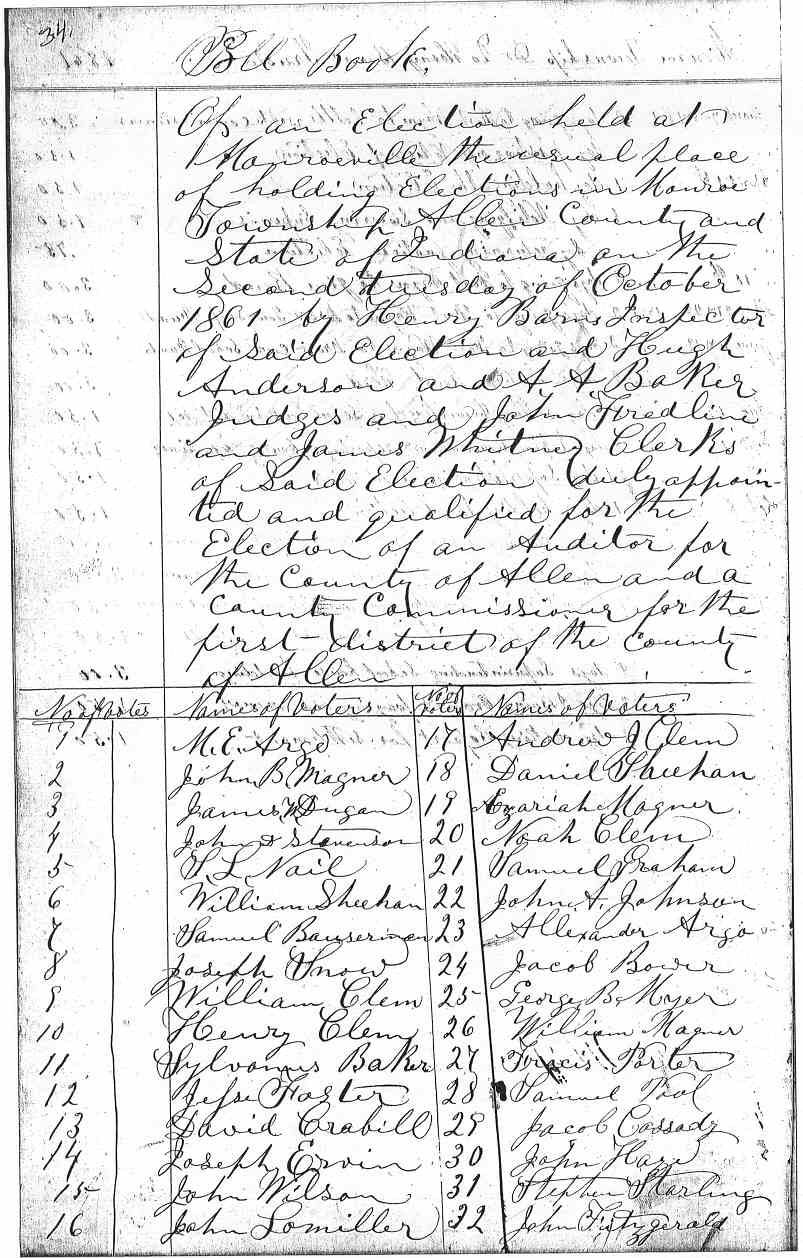 34.
Poll Book.
Of an Election held at
Monroeville the usual place
of holding Elections in Monroe
Township Allen County and
State of Indiana on the
Second tuesday of October
1861 by Henry Barns Inspector
of Said Election and Hugh
Anderson and A. A Baker
Judges and John Friedline
and James Whitney Clerks
of Said Election duly appoin-
ted and qualified for the
Election of an Auditor for
the County of Allen and a
County Commissioner for the
first district of the County
of Allen
No of votes Names of Voters No of Votes Names of Voters
1 M. E. Argo 17 Andrew J Clem
2 John B Magner 18 Daniel Sheehan
3 James W Dugan 19 Azariah Magner
4 John Stevenson 20 Noah Clem
5 S. L. Nail 21 Samuel Graham
6 William Sheehan 22 John A. Johnson
7 Samuel Bauserman 23 Allexander Argo
8 Joseph Snow 24 Jacob Bower
9 William Clem 25 George B. Myer
10 Henry Clem 26 William Magner
11 Sylvanus Baker 27 Francis Porter
12 Jesse Foster 28 Samuel Pool
13 David Crabill 29 Jacob Cassady
14 Joseph Ervin 30 John
15 John Wilson 31 Stephen Starling
16 John Lomiller 32 John Fistzgerald